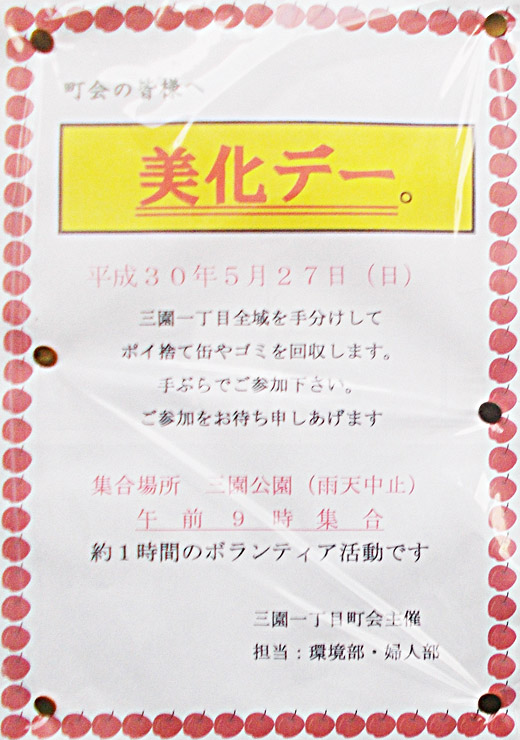 町会の皆様へ
美化デー。
平成30年5月27日（日）
三園一丁目全域を手分けして
ポイ捨て缶やゴミを回収します。
手ぶらでご参加下さい。
ご参加をお待ち申しあげます
集合場所　三園公園（雨天中止）
午前9時集合
約1時間のボランティア活動です
三園一丁目町会主催
担当：環境部・婦人部